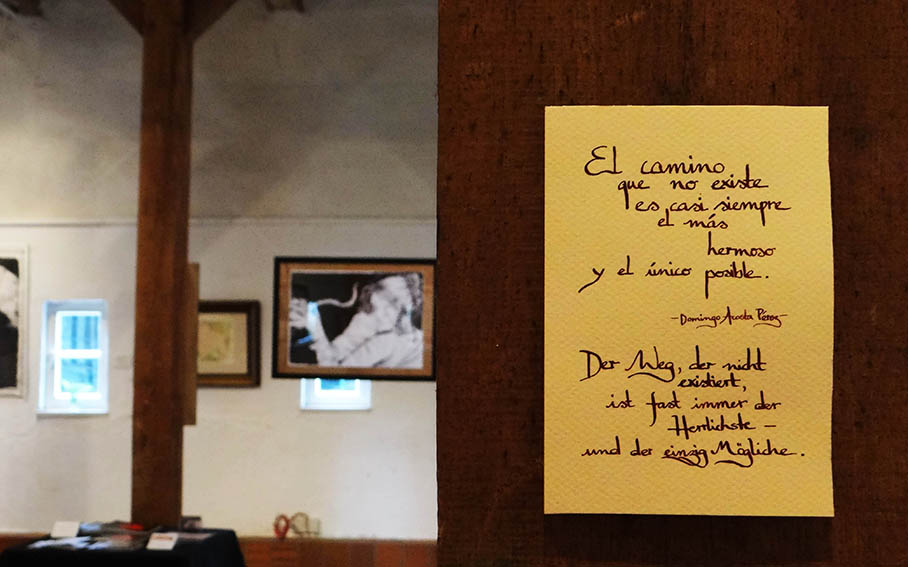 El camino
que no existe
es casi siempre
el más
hermoso
y el único posible.
-Domingo Acosta Pérez-
Der Weg, der nicht
existiert,
ist fast immer der
Herrlichste -
und der einzig Mögliche.